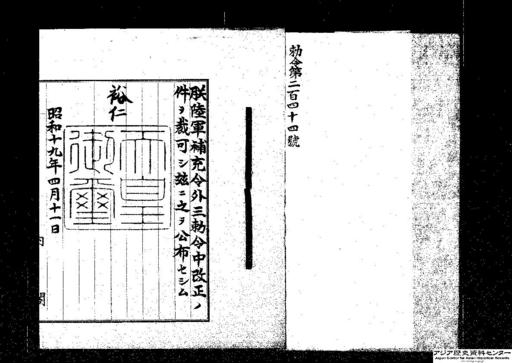 勅令第二百四十四號
朕陸軍補充令外三勅令中改正ノ
件ヲ裁可シ玆ニ之ヲ公布セシム
裕仁
天皇御璽
昭和十九年四月十一日
内閣
アジア歴史資料センター
Japan Center for Asian Historical Records